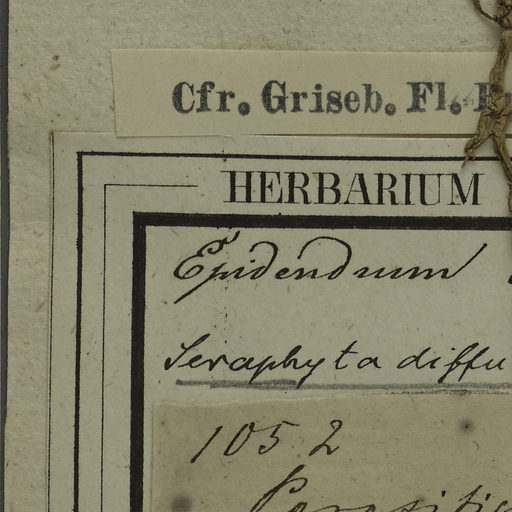 Cfr. Griseb. Fl.
HERBARIUM
Epidendrum
Seraphyta diffu
1052
Parasitic